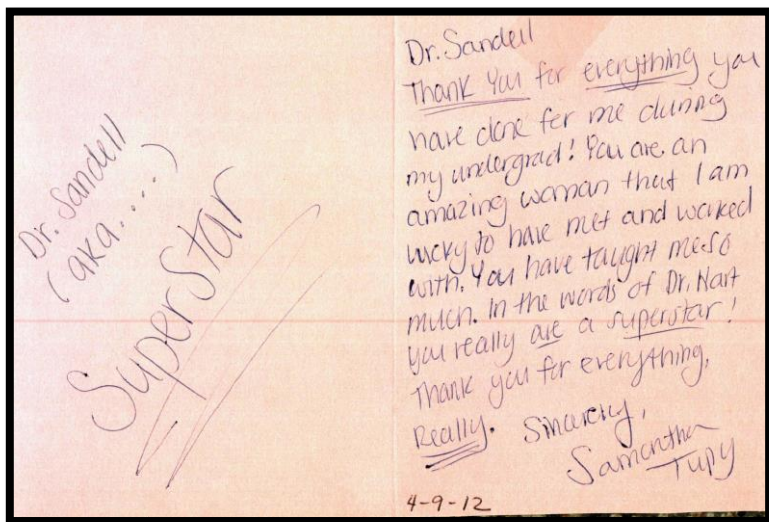 Dr. Sandell
(aka....)
SuperStar
Dr. Sandell
Thank You for everything you
have done for me during
my undergrad! You are an
amazing woman that I am
lucky to have met and worked
with. You have taught me so
much. In the words of Dr. Nart
you really are a superstar!
Thank you for everything,
Really. Sincerely,
Samantha
Tupy
4-9-12